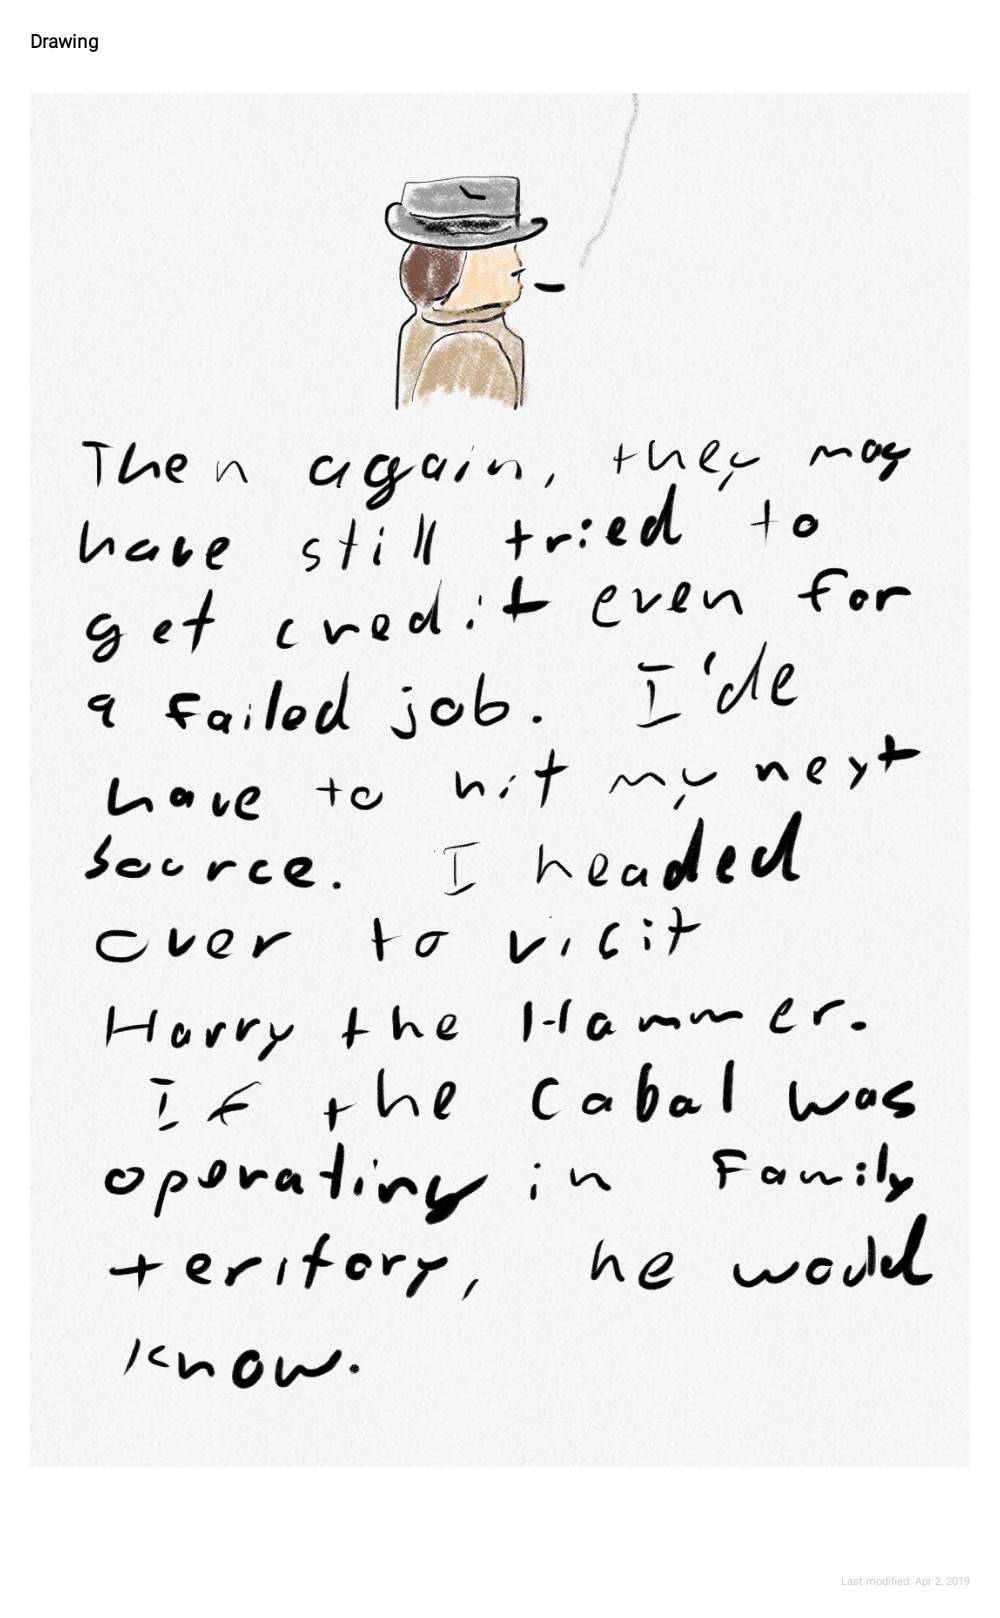 Drawing
Then again, they may
have still tried to
get credit even for
a failed job. I'de
have to hit my next
source. I headed
over to vicit
Harry the Hammer.
If the Cabal was
operating in Family
teritory, he would
know.
Last modified: Apr 2, 2019